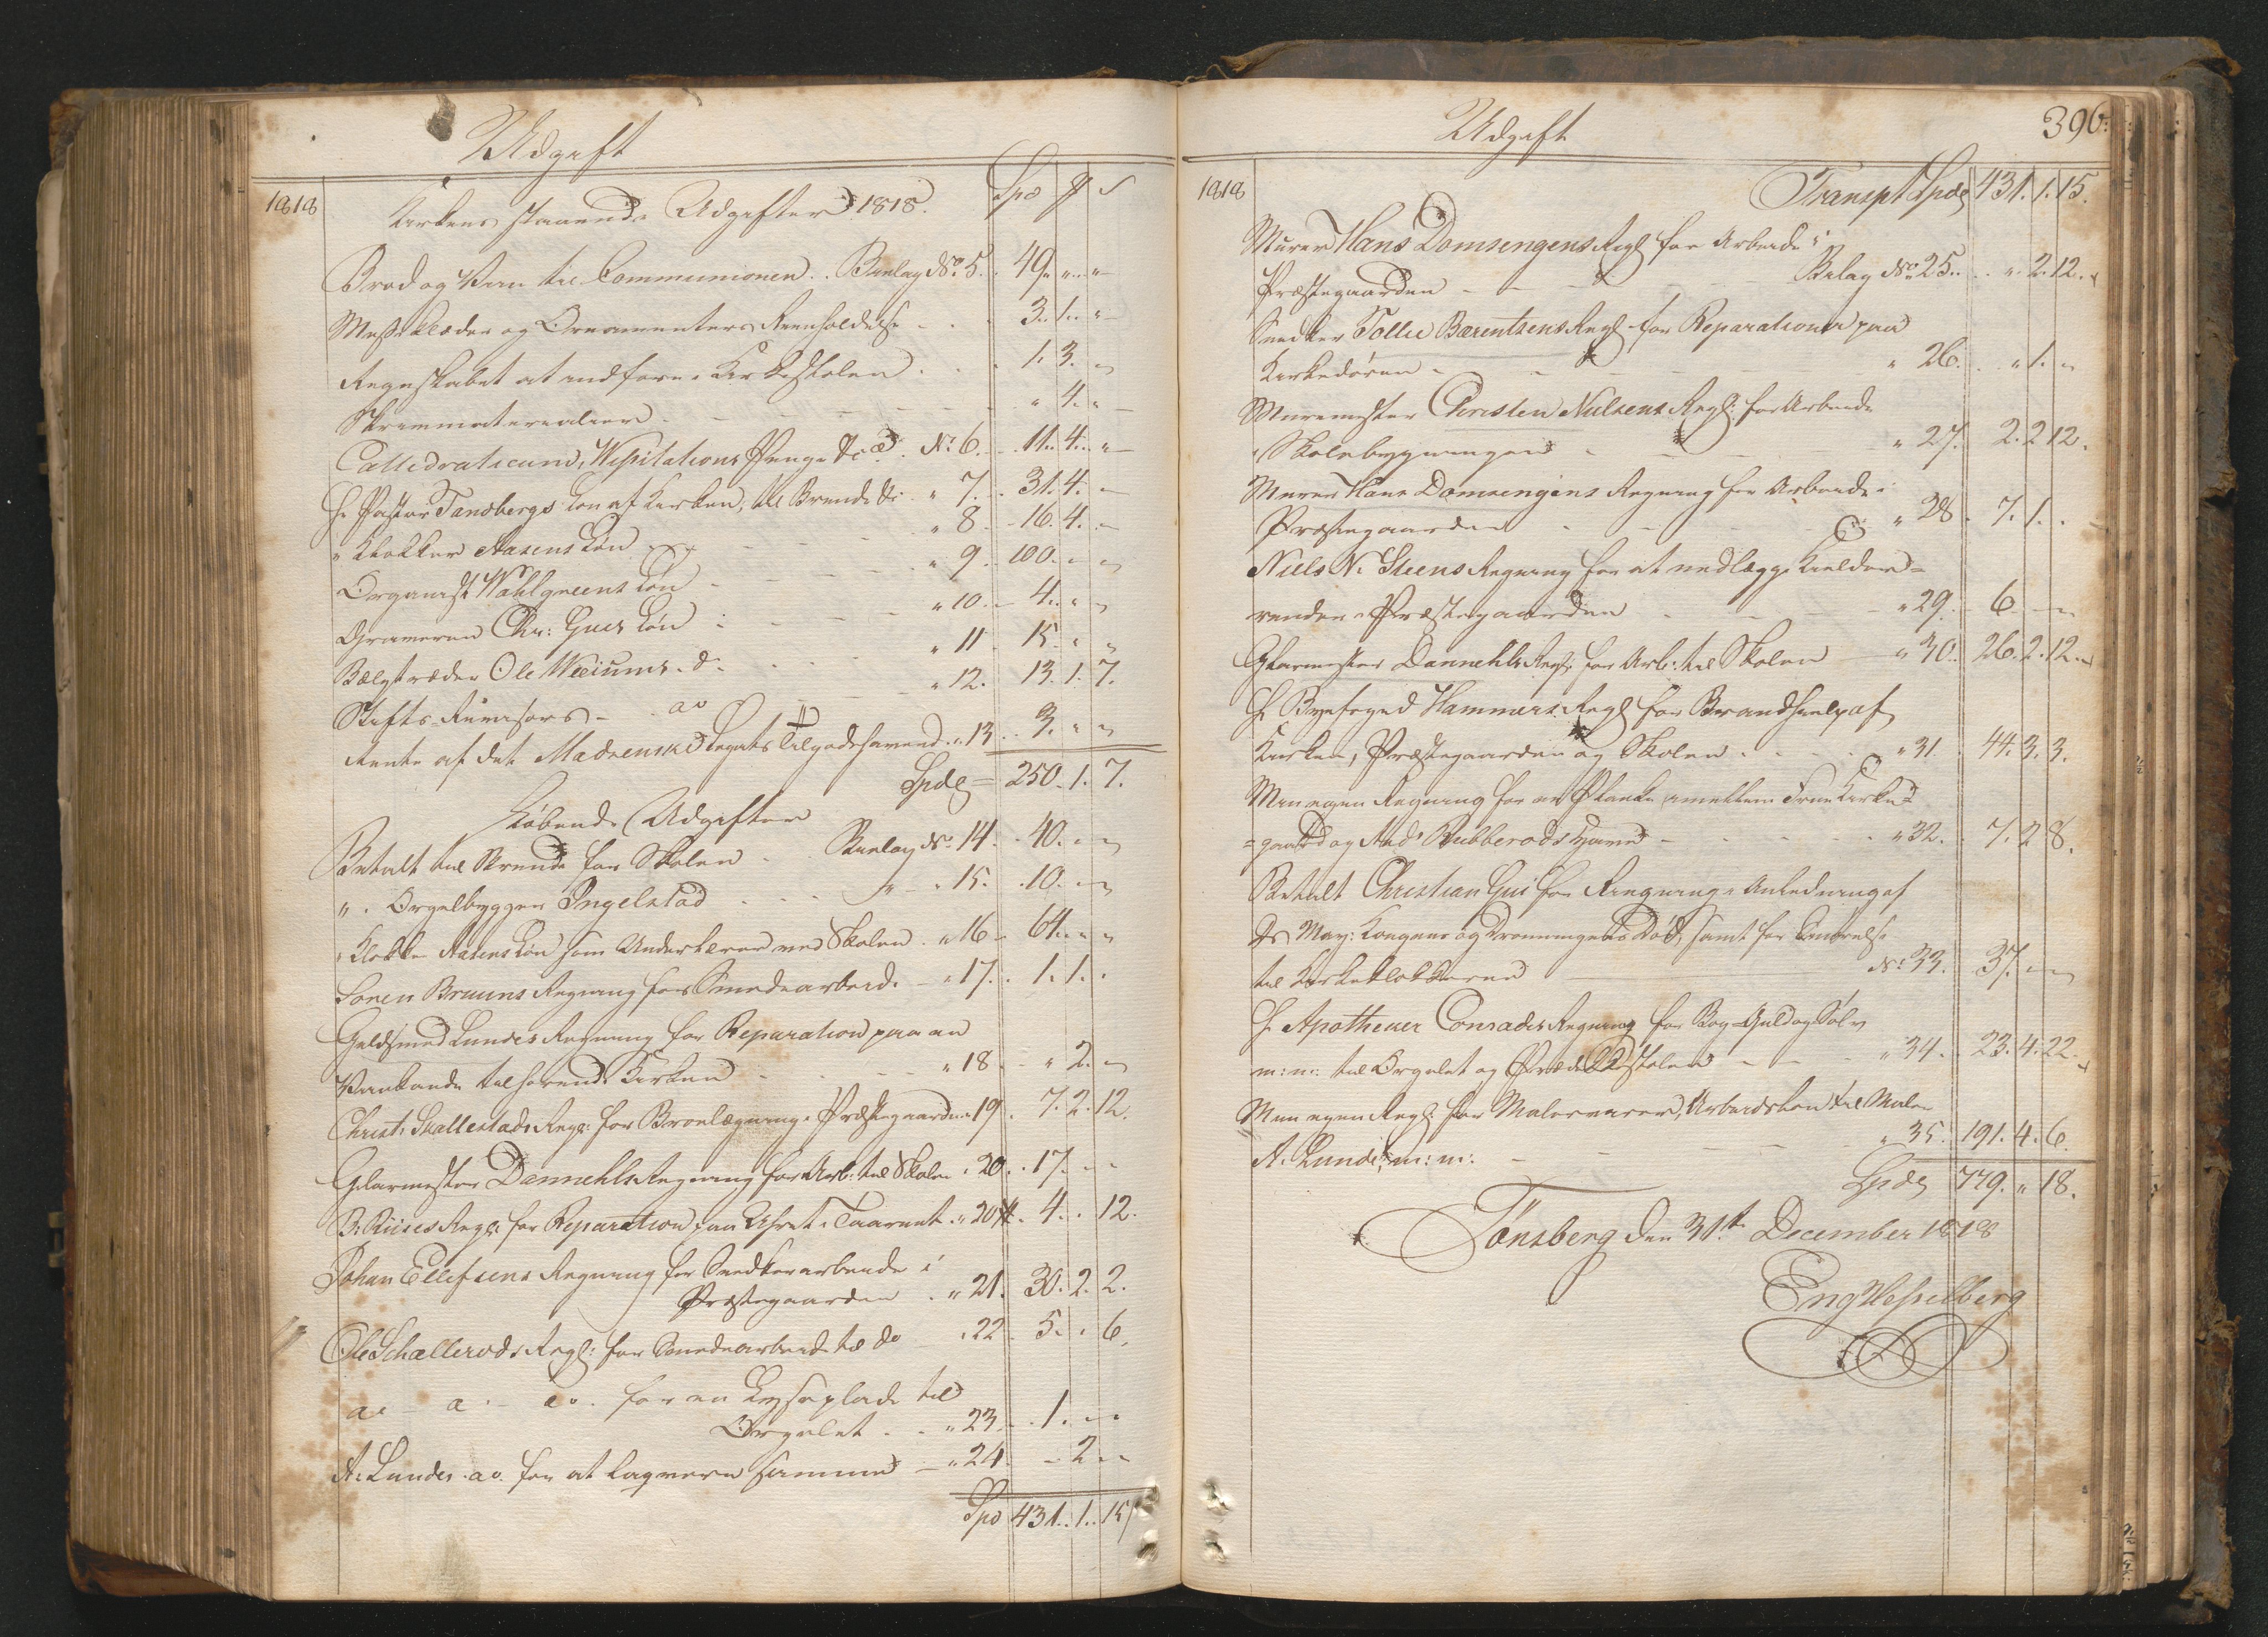 Udgift
1818
Kirkens staaende Udgifter 1818.
Spd
Brød og Viin til Communionen . . Bielag No: 5. 49. " . "
Messeklæder og Ornamenters Reenholdelse . . 3. 1. "
Regnskabet at indføre i Kirkestolen . . 1. 3. "
Skrivmaterialier . " 4. "
Cathedraticum, Visitations Penge &c N: 6. 11. 4. "
H. Pastor Tandbergs Løn af Kirken, til Brænde &c " 7. 31. 4. "
" Klokker Aasens Løn " 8. 16. 4. "
Organist Wahlgreens Løn " 9. 100. " "
Graveren Chr: Guis Løn " 10. 4. " "
Bælgtræder Ole Weiums do " 11 15. " "
Stifts-Revisors do " 12. 13. 1. 7.
Rente af det Madsenske Legats Tilgodehavend. " 13 3. " "
Spdr 250. 1. 7.
Løbende Udgifter
Betalt til Brænde for Skolen Bielag No 14. 40. " "
" . Orgelbygger Ingelstad " " 15. 10. " "
" Klokker Aasens Løn som Underlærer ved Skolen " 16 64. " "
Søren Bruuns Regning for Smedearbeide " 17. 1. 1. "
Guldsmed Lundes Regning for Reparation paa en
Viinkande tilhørende Kirken " 18 " 2. "
Christ: Skallestads Regn: for Broelægning i Præstegaarden " 19. 7. 2. 12.
Glarmester Dannehls Regning for Arb: til Skolen " 20. 17. " "
B: Riises Regn: for Reparation paa Uhret i Taarnet " 20 4. " 12.
Johan Ellefsens Regning for Snedkerarbeide i
Præstegaarden " 21. 30. 2. 2.
Ole Schallerods Regn: for Smedearbeide til do " 22 5. " 6.
do do do for en Lyseplade til
Orgelet . . " 23. 1. " "
A. Lundes do for at laqvere samme " 24. " 2. "
Spd 431. 1. 15
Udgift
396.
1818
Transpt Spdr 431. 1. 15.
Murer Hans Domsengens Regn for Arbeide i
Præstegaarden Bilag No 25. " 2. 12.
Snedker Tollie Bærentsens Regn for Reparationer paa
Kirkedøren " 26. " 1. "
Muremester Christen Nielsens Regn: for Arbeide
i Skolebygningen " 27. 2. 2 12.
Murer Hans Domsengens Regning for Arbeide i
Præstegaarden " 28. 7. 1. .
Niels N. Steens Regning for at nedlægge Kielder-
render i Præstegaarden " 29. 6. " "
Glarmester Dannehls Regn for Arb: til Skolen " 30. 26. 2. 12.
H. Byefoged Hammers Regn for Brandhielp af
Kirken, Præstegaarden og Skolen " 31. 44. 3. 3.
Min egen Regning for en Planke imellem Frue Kirke-
=gaard og And: Bubberods Have " 32. 7. 2 8.
Betalt Christian Gui for Ringning i Anledning af
Ds May: Kongens og Dronningens Død, samt for Smørelse
til Kirkeklokkerne No: 33. 37. " "
H. Apotheker Conrades Regning for Bog-Guld og Sølv
m: m: til Orgelet og Prædikestolen " 34. 23. 4. 22.
Min egen Regn: for Malervarer, Arbeidsløn til Maler
A. Lunde m: m: " 35. 191. 4. 6.
Spdr 779. " 18.
Tönsberg den 31te December 1818
Eng Hesselberg